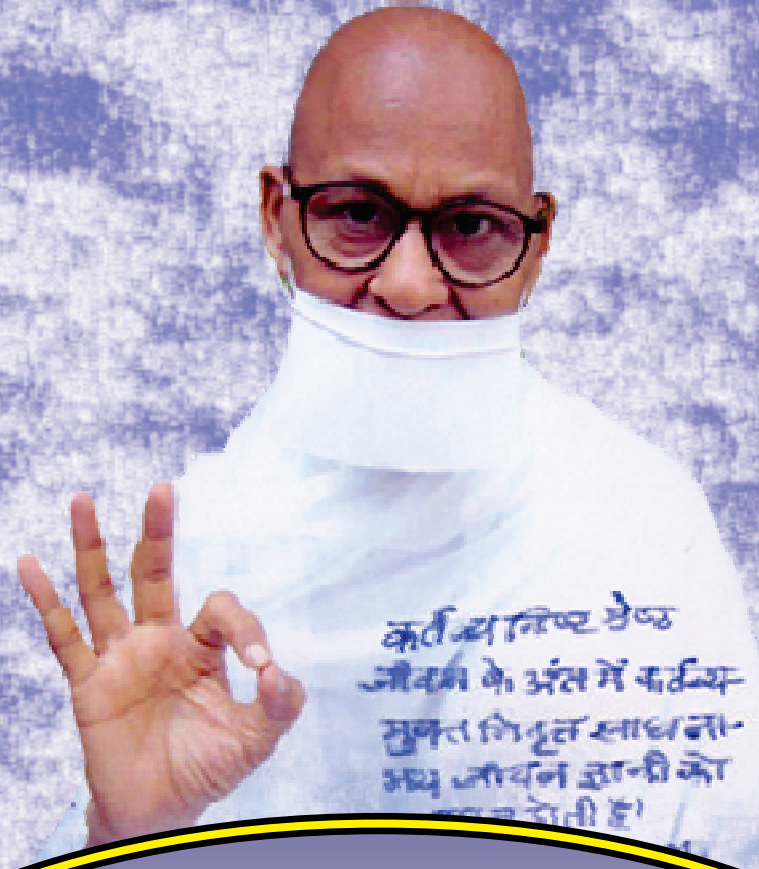 कर्तव्य निष्ठ श्रेष्ठ
जीवन के अंत में कर्तव्य-
मुक्त निवृत साधना-
मय जीवन ज्ञानी को
होती है!